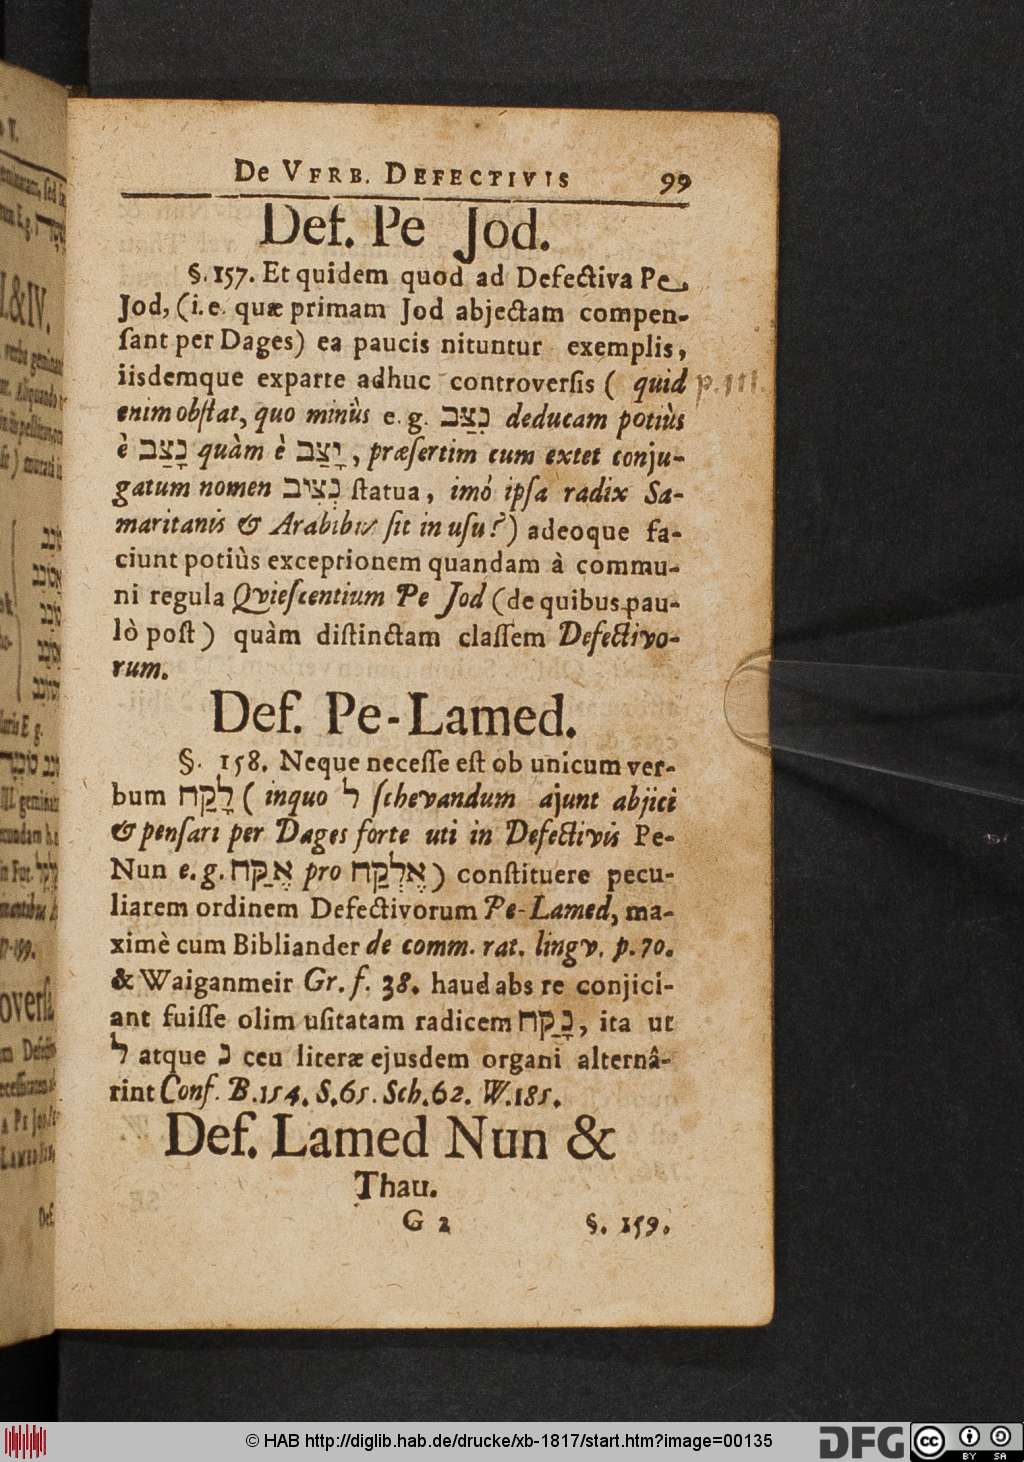 De VERB. DEFECTIVIS 99
Def. Pe Jod.
§. 157. Et quidem quod ad Defectiva Pe
Jod, (i.e. quæ primam Jod abjectam compen-
ſant per Dages) ea paucis nituntur exemplis,
iisdemque exparte adhuc controverſis ( quid
enim obſtat, quo minùs e. g. נִצַּב deducam potiùs
è נָצַב quàm è יָצַב, præſertim cum extet conju-
gatum nomen נְצִיב ſtatua, imò ipſa radix Sa-
maritanis & Arabibus ſit in uſu?) adeoque fa-
ciunt potiùs exceptionem quandam à commu-
ni regula Qvieſcentium Pe Jod (de quibus pau-
lò poſt) quàm diſtinctam claſſem Defectivo-
rum.
Def. Pe-Lamed.
§. 158. Neque neceſſe eſt ob unicum ver-
bum לָקַח ( inquo ל ſchevandum ajunt abjici
& penſari per Dages forte uti in Defectivis Pe-
Nun e. g. אֶקַּח pro אֶלְקַח) conſtituere pecu-
liarem ordinem Defectivorum Pe-Lamed, ma-
ximè cum Bibliander de comm. rat. lingv. p. 70.
& Waiganmeir Gr. f. 38. haud abs re conjici-
ant fuiſſe olim uſitatam radicem נָקַח, ita ut
ל atque נ ceu literæ ejusdem organi alternâ-
rint Conf. B. 154. S. 65. Sch. 62. W. 185.
Def. Lamed Nun &
Thau.
G 2 §. 159.
© HAB http://diglib.hab.de/drucke/xb-1817/start.htm?image=00135
DFG
cc BY SA